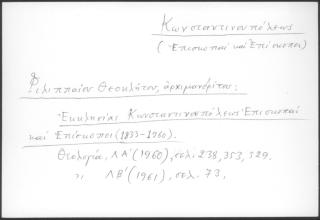 Κωνσταντινουπόλεως
(Ἐπισκοπαὶ καὶ Ἐπίσκοποι)
Φιλιππαίου Θεοκλήτου, ἀρχιμανδρίτου:
Ἐκκλησίας Κωνσταντινουπόλεως Ἐπισκοπαὶ
καὶ Ἐπίσκοποι (1833-1960).
Θεολογία, ΛΑ' (1960), σελ. 238, 353, 529.
" ΛΒ' (1961), σελ. 73,